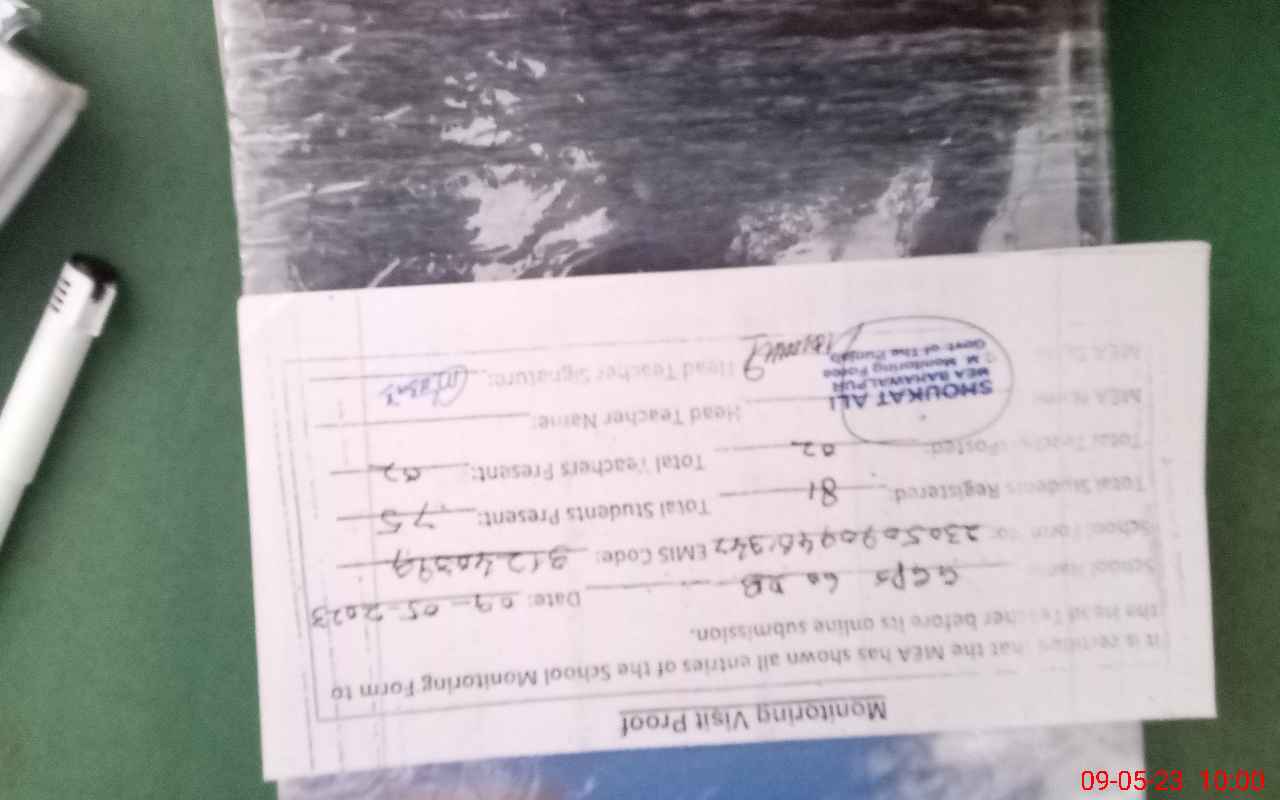 Monitoring Visit Proof
It is certified that the MEA has shown all entries of the School Monitoring Form to
the Head Teacher before its online submission.
School Name: GGPS 60 DB Date: 09-05-2023
School Form No: EMIS Code:
Total Students Registered: 81 Total Students Present: 75
Total Teachers Posted: 02 Total Teachers Present: 02
MEA Name Head Teacher Name:
SHOUKAT ALI
MEA BAHAWALPUR
M. Monitoring Force
Govt of The Punjab
Head Teacher Signature:
09-05-23 10:00